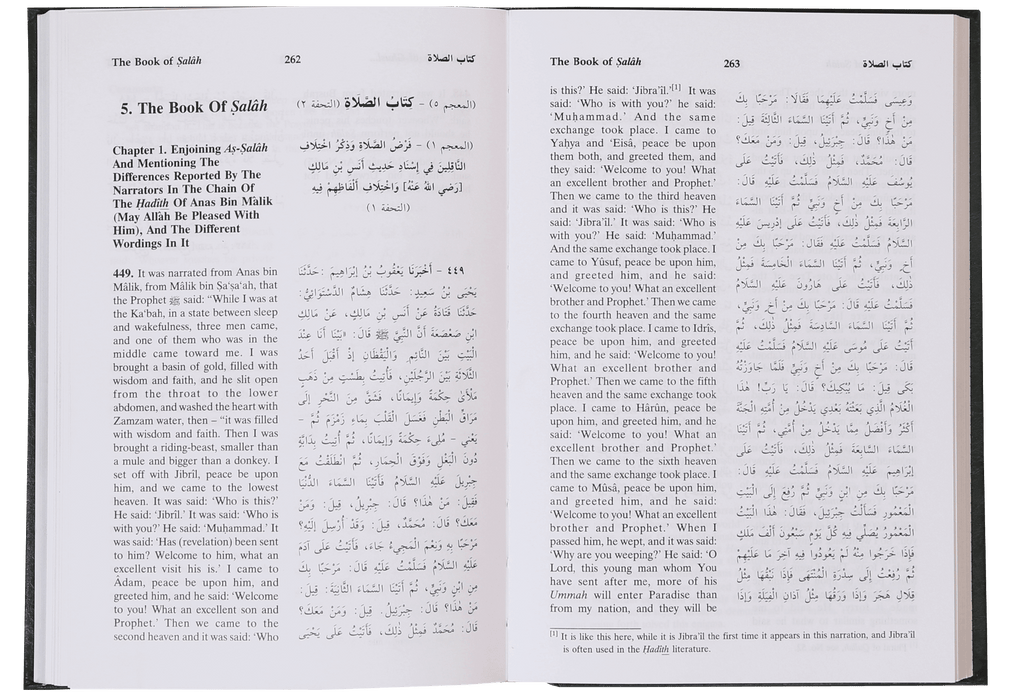 The Book of Ṣalâh 262 كتاب الصلاة
5. The Book Of Ṣalâh (المعجم ٥) - كتَابُ الصَّلَاةِ (التحفة ٢)
Chapter 1. Enjoining Aṣ-Ṣalâh
And Mentioning The
Differences Reported By The
Narrators In The Chain Of
The Ḥadîth Of Anas Bin Mâlik
(May Allâh Be Pleased With
Him), And The Different
Wordings In It
(المعجم ١) - فَرْضُ الصَّلَاةِ وَذِكْرُ اخْتِلَافِ
النَّاقِلِينَ فِي إِسْنَادِ حَدِيثِ أَنَسِ بْنِ مَالِكٍ
[رَضِيَ اللهُ عَنْهُ] وَاخْتِلَافِ أَلْفَاظِهِمْ فِيهِ
(التحفة ١)
449. It was narrated from Anas bin
Mâlik, from Mâlik bin Ṣa'ṣa'ah, that
the Prophet ﷺ said: "While I was at
the Ka'bah, in a state between sleep
and wakefulness, three men came,
and one of them who was in the
middle came toward me. I was
brought a basin of gold, filled with
wisdom and faith, and he slit open
from the throat to the lower
abdomen, and washed the heart with
Zamzam water, then – "it was filled
with wisdom and faith. Then I was
brought a riding-beast, smaller than
a mule and bigger than a donkey. I
set off with Jibrîl, peace be upon
him, and we came to the lowest
heaven. It was said: 'Who is this?'
He said: 'Jibrîl.' It was said: 'Who is
with you?' He said: 'Muḥammad.' It
was said: 'Has (revelation) been sent
to him? Welcome to him, what an
excellent visit his is.' I came to
Âdam, peace be upon him, and
greeted him, and he said: 'Welcome
to you! What an excellent son and
Prophet.' Then we came to the
second heaven and it was said: 'Who
٤٤٩ - أَخْبَرَنَا يَعْقُوبُ بْنُ إِبْرَاهِيمَ: حَدَّثَنَا
يَحْيَى بْنُ سَعِيدٍ: حَدَّثَنَا هِشَامٌ الدَّسْتَوَائِيُّ:
حَدَّثَنَا قَتَادَةُ عَنْ أَنَسِ بْنِ مَالِكٍ، عَنْ مَالِكِ
ابْنِ صَعْصَعَةَ أَنَّ النَّبِيَّ ﷺ قَالَ: «بَيْنَا أَنَا عِنْدَ
الْبَيْتِ بَيْنَ النَّائِمِ وَالْيَقْظَانِ إِذْ أَقْبَلَ أَحَدُ
الثَّلَاثَةِ بَيْنَ الرَّجُلَيْنِ، فَأُتِيتُ بِطَسْتٍ مِنْ ذَهَبٍ
مَلْآىَ حِكْمَةً وَإِيمَانًا، فَشَقَّ مِنَ النَّحْرِ إِلَى
مَرَاقِّ الْبَطْنِ فَغَسَلَ الْقَلْبَ بِمَاءِ زَمْزَمَ ثُمَّ -
يَعْنِي - مُلِىءَ حِكْمَةً وَإِيمَانًا، ثُمَّ أُتِيتُ بِدَابَّةٍ
دُونَ الْبَغْلِ وَفَوْقَ الْحِمَارِ، ثُمَّ انْطَلَقْتُ مَعَ
جِبْرِيلَ عَلَيْهِ السَّلَامُ فَأَتَيْنَا السَّمَاءَ الدُّنْيَا
فَقِيلَ: مَنْ هٰذَا؟ قَالَ: جِبْرِيلُ، قِيلَ: وَمَنْ
مَعَكَ؟ قَالَ: مُحَمَّدٌ، قِيلَ: وَقَدْ أُرْسِلَ إِلَيْهِ؟
مَرْحَبًا بِهِ وَنِعْمَ الْمَجِيءُ جَاءَ، فَأَتَيْتُ عَلَى آدَمَ
عَلَيْهِ السَّلَامُ فَسَلَّمْتُ عَلَيْهِ، قَالَ: مَرْحَبًا بِكَ
مِنِ ابْنٍ وَنَبِيٍّ، ثُمَّ أَتَيْنَا السَّمَاءَ الثَّانِيَةَ: قِيلَ:
مَنْ هٰذَا؟ قَالَ: جِبْرَئِيلُ. قِيلَ: وَمَنْ مَعَكَ؟
قَالَ: مُحَمَّدٌ فَمِثْلُ ذٰلِكَ، فَأَتَيْتُ عَلَى يَحْيَى
The Book of Ṣalâh 263 كتاب الصلاة
is this?' He said: 'Jibra'îl.'[1] It was
said: 'Who is with you?' he said:
'Muḥammad.' And the same
exchange took place. I came to
Yaḥya and 'Eisâ, peace be upon
them both, and greeted them, and
they said: 'Welcome to you! What
an excellent brother and Prophet.'
Then we came to the third heaven
and it was said: 'Who is this?' He
said: 'Jibra'îl.' It was said: 'Who is
with you?' He said: 'Muḥammad.'
And the same exchange took place. I
came to Yûsuf, peace be upon him,
and greeted him, and he said:
'Welcome to you! What an excellent
brother and Prophet.' Then we came
to the fourth heaven and the same
exchange took place. I came to Idrîs,
peace be upon him, and greeted
him, and he said: 'Welcome to you!
What an excellent brother and
Prophet.' Then we came to the fifth
heaven and the same exchange took
place. I came to Hârûn, peace be
upon him, and greeted him, and he
said: 'Welcome to you! What an
excellent brother and Prophet.'
Then we came to the sixth heaven
and the same exchange took place. I
came to Mûsâ, peace be upon him,
and greeted him, and he said:
'Welcome to you! What an excellent
brother and Prophet.' When I
passed him, he wept, and it was said:
'Why are you weeping?' He said: 'O
Lord, this young man whom You
have sent after me, more of his
Ummah will enter Paradise than
from my nation, and they will be
وَعِيسَى فَسَلَّمْتُ عَلَيْهِمَا فَقَالَا: مَرْحَبًا بِكَ
مِنْ أَخٍ وَنَبِيٍّ، ثُمَّ أَتَيْنَا السَّمَاءَ الثَّالِثَةَ قِيلَ:
مَنْ هٰذَا؟ قَالَ: جِبْرَئِيلُ، قِيلَ: وَمَنْ مَعَكَ؟
قَالَ: مُحَمَّدٌ، فَمِثْلُ ذٰلِكَ، فَأَتَيْتُ عَلَى
يُوسُفَ عَلَيْهِ السَّلَامُ فَسَلَّمْتُ عَلَيْهِ قَالَ:
مَرْحَبًا بِكَ مِنْ أَخٍ وَنَبِيٍّ ثُمَّ أَتَيْنَا السَّمَاءَ
الرَّابِعَةَ فَمِثْلُ ذٰلِكَ، فَأَتَيْتُ عَلَى إِدْرِيسَ عَلَيْهِ
السَّلَامُ فَسَلَّمْتُ عَلَيْهِ فَقَالَ: مَرْحَبًا بِكَ مِنْ
أَخٍ وَنَبِيٍّ، ثُمَّ أَتَيْنَا السَّمَاءَ الْخَامِسَةَ فَمِثْلُ
ذٰلِكَ، فَأَتَيْتُ عَلَى هَارُونَ عَلَيْهِ السَّلَامُ
فَسَلَّمْتُ عَلَيْهِ قَالَ: مَرْحَبًا بِكَ مِنْ أَخٍ وَنَبِيٍّ،
ثُمَّ أَتَيْنَا السَّمَاءَ السَّادِسَةَ فَمِثْلُ ذٰلِكَ، ثُمَّ
أَتَيْتُ عَلَى مُوسَى عَلَيْهِ السَّلَامُ فَسَلَّمْتُ عَلَيْهِ
قَالَ: مَرْحَبًا بِكَ مِنْ أَخٍ وَنَبِيٍّ فَلَمَّا جَاوَزْتُهُ
بَكَى قِيلَ: مَا يُبْكِيكَ؟ قَالَ: يَا رَبِّ! هٰذَا
الْغُلَامُ الَّذِي بَعَثْتَهُ بَعْدِي يَدْخُلُ مِنْ أُمَّتِهِ الْجَنَّةَ
أَكْثَرُ وَأَفْضَلُ مِمَّا يَدْخُلُ مِنْ أُمَّتِي، ثُمَّ أَتَيْنَا
السَّمَاءَ السَّابِعَةَ فَمِثْلُ ذٰلِكَ، فَأَتَيْتُ عَلَى
إِبْرَاهِيمَ عَلَيْهِ السَّلَامُ فَسَلَّمْتُ عَلَيْهِ قَالَ:
مَرْحَبًا بِكَ مِنِ ابْنٍ وَنَبِيٍّ ثُمَّ رُفِعَ لِيَ الْبَيْتُ
الْمَعْمُورُ فَسَأَلْتُ جِبْرَئِيلَ، فَقَالَ: هٰذَا الْبَيْتُ
الْمَعْمُورُ يُصَلِّي فِيهِ كُلَّ يَوْمٍ سَبْعُونَ أَلْفَ مَلَكٍ
فَإِذَا خَرَجُوا مِنْهُ لَمْ يَعُودُوا فِيهِ آخِرَ مَا عَلَيْهِمْ
ثُمَّ رُفِعَتْ لِي سِدْرَةُ الْمُنْتَهَى فَإِذَا نَبْقُهَا مِثْلُ
قِلَالِ هَجَرَ وَإِذَا وَرَقُهَا مِثْلُ آذَانِ الْفِيَلَةِ وَإِذَا
[1] It is like this here, while it is Jibra'îl the first time it appears in this narration, and Jibra'îl
is often used in the Ḥadîth literature.